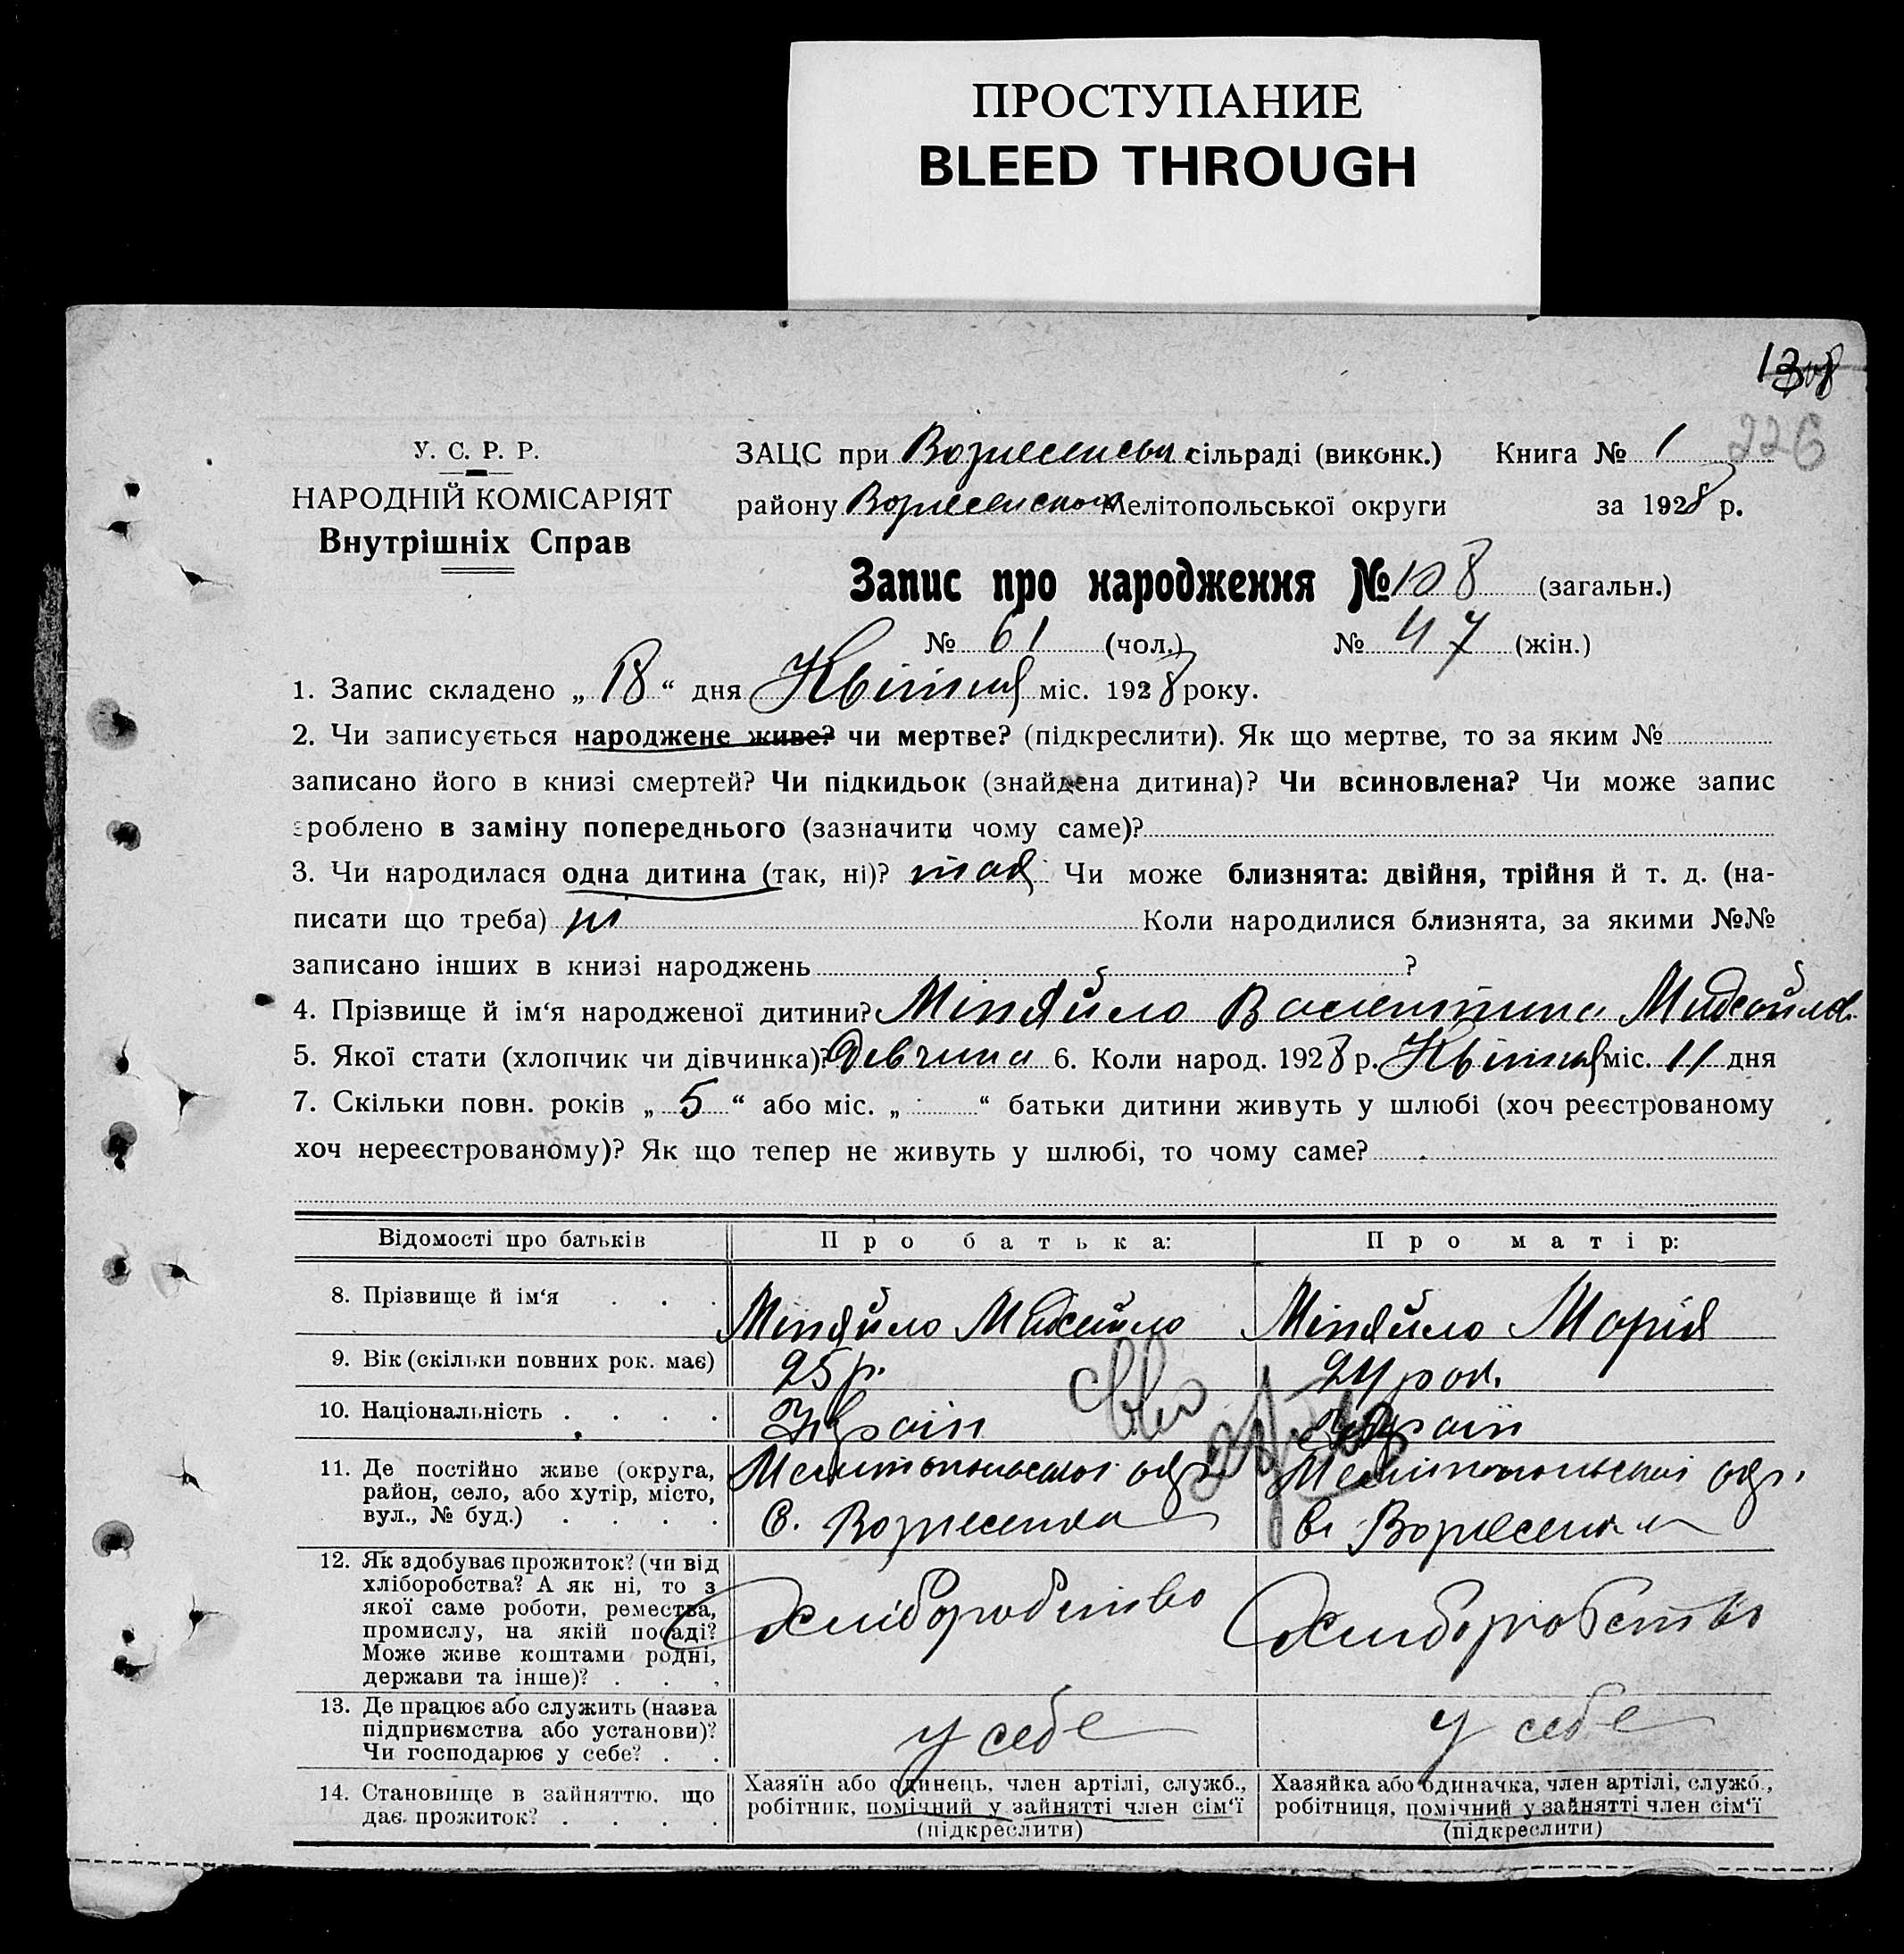 ПРОСТУПАНИЕ
BLEED THROUGH
226
У. С. Р. Р.
НАРОДНІЙ КОМІСАРІЯТ
Внутрішніх Справ
ЗАЦС при Вознесенськ сільраді (виконк.) Книга № 1
району Вознесенського Мелітопольської округи за 1928 р.
Запис про народження № 108 (загальн.)
№ 61 (чол.) № 47 (жін.)
1. Запис складено „ 18 “ дня Квітня міс. 1928 року.
2. Чи записується народжене живе? чи мертве? (підкреслити). Як що мертве, то за яким №
записано його в книзі смертей? Чи підкидьок (знайдена дитина)? Чи всиновлена? Чи може запис
зроблено в заміну попереднього (зазначити чому саме)?
3. Чи народилася одна дитина (так, ні)? так Чи може близнята: двійня, трійня й т. д. (на-
писати що треба) ні Коли народилися близнята, за якими №№
записано інших в книзі народжень ?
4. Прізвище й ім‘я народженої дитини? Міняйло Валентина Михайлов.
5. Якої стати (хлопчик чи дівчинка)? Дівчина 6. Коли народ. 1928 р. Квітня міс. 11 дня
7. Скільки повн. років „ 5 “ або міс. „ “ батьки дитини живуть у шлюбі (хоч реєстрованому
хоч нереєстрованому)? Як що тепер не живуть у шлюбі, то чому саме?
Відомості про батьків Про батька: Про матір:
8. Прізвище й ім‘я . . . Міняйло Михайло Міняйло Марія
9. Вік (скільки повних рок. має) 25 р. 24 рок.
10. Національність . . . . Україн Україн
11. Де постійно живе (округа,
район, село, або хутір, місто,
вул., № буд.) . . . .
Мелітопольської окр. Мелітопольської окр.
с. Вознесенка с. Вознесенка
12. Як здобуває прожиток? (чи від
хліборобства? А як ні, то з
якої саме роботи, ремества,
промислу, на якій посаді?
Може живе коштами родні,
держави та інше)? . . .
Хліборобство Хліборобство
13. Де працює або служить (назва
підприємства або установи)?
Чи господарює у себе? . .
у себе у себе
14. Становище в зайняттю, що
дає прожиток? . . . .
Хазяїн або одинець, член артілі, служб.,
робітник, помічний у зайнятті член сім‘ї
(підкреслити)
Хазяйка або одиначка, член артілі, служб.,
робітниця, помічний у зайнятті член сім‘ї
(підкреслити)